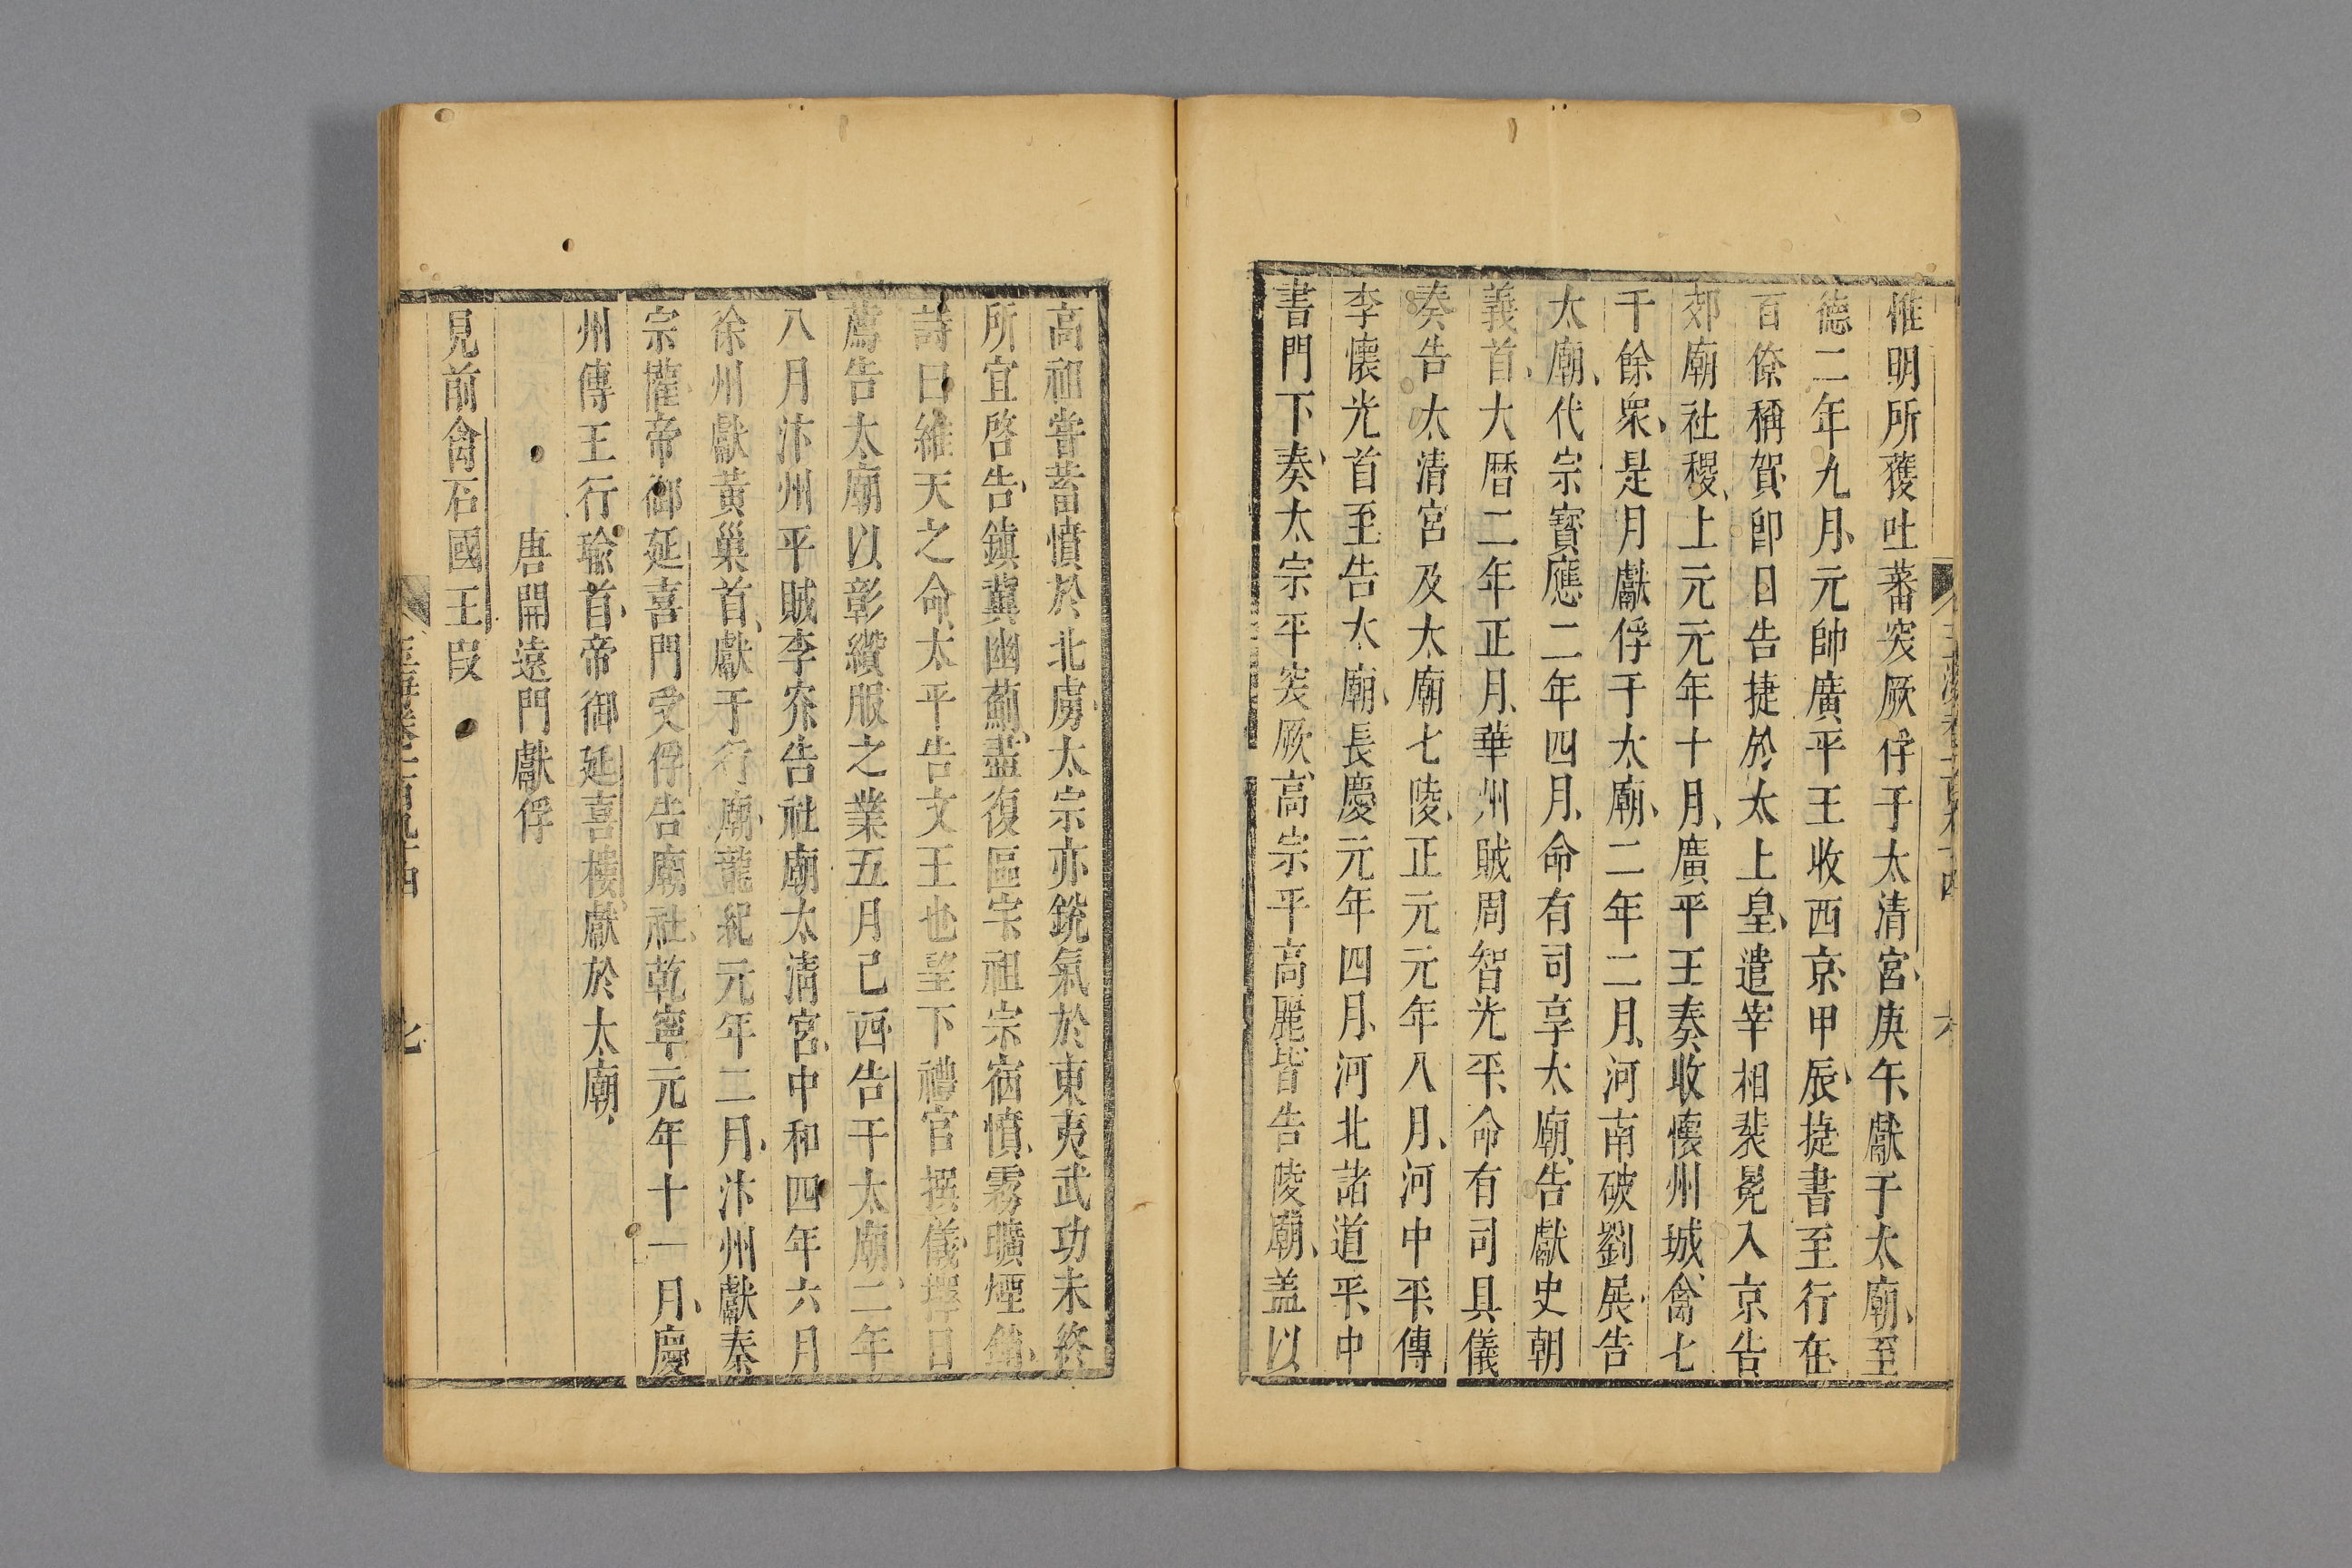 惟明所獲吐蕃突厥俘于太清宮庚午獻于太廟至
德二年九月元帥廣平王收西京甲辰捷書至行在
百僚稱賀即日告捷於太上皇遣宰相裴冕入京告
郊廟社稷上元元年十月廣平王奏收懷州城禽七
千餘衆是月獻俘于太廟二年二月河南破劉展告
太廟代宗寶應二年四月命有司享太廟告獻史朝
義首大曆二年正月華州賊周智光平命有司具儀
奏告太清宮及太廟七陵正元元年八月河中平傳
李懷光首至告太廟長慶元年四月河北諸道平中
書門下奏太宗平突厥高宗平高麗皆告陵廟盖以
高祖嘗蓄憤於北虜太宗亦銳氣於東夷武功未終
所宜啓告鎮冀幽薊盡復區宇祖宗宿憤霧曠煙銷
詩曰維天之命太平告文王也望下禮官撰儀擇日
薦告太廟以彰纘服之業五月己酉告于太廟二年
八月汴州平賊李㝏告社廟太清宮中和四年六月
徐州獻黃巢首獻于行廟龍紀元年二月汴州獻秦
宗權帝御延喜門受俘告廟社乾寧元年十一月慶
州傳王行瑜首帝御延喜樓獻於太廟
唐開遠門獻俘
見前禽石國王叚